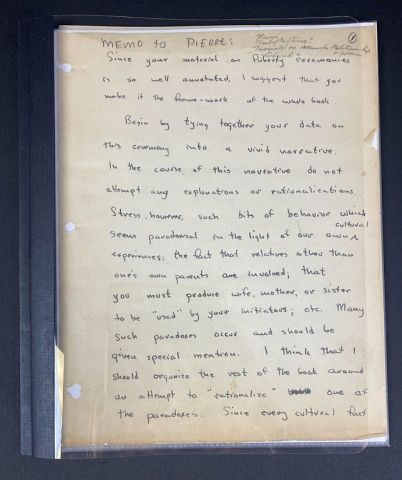 MEMO to PIERRE:
①
on Relationship
Since your material on Puberty ceremonies
is so well annotated, I suggest that you
make it the frame-work of the whole book.
Begin by tying together your data on
this ceremony into a vivid narrative.
In the course of this narrative do not
attempt any explanations or rationalizations.
Stress, however, such bits of behavior which
seem paradoxical in the light of our own cultural
experiences: the fact that relatives other than
one's own parents are involved; that
you must produce wife, mother, or sister
to be "used" by your initiators; etc. Many
such paradoxes occur and should be
given special mention. I think that I
should organize the rest of the book around
an attempt to "rationalize" one of
the paradoxes. Since every cultural fact